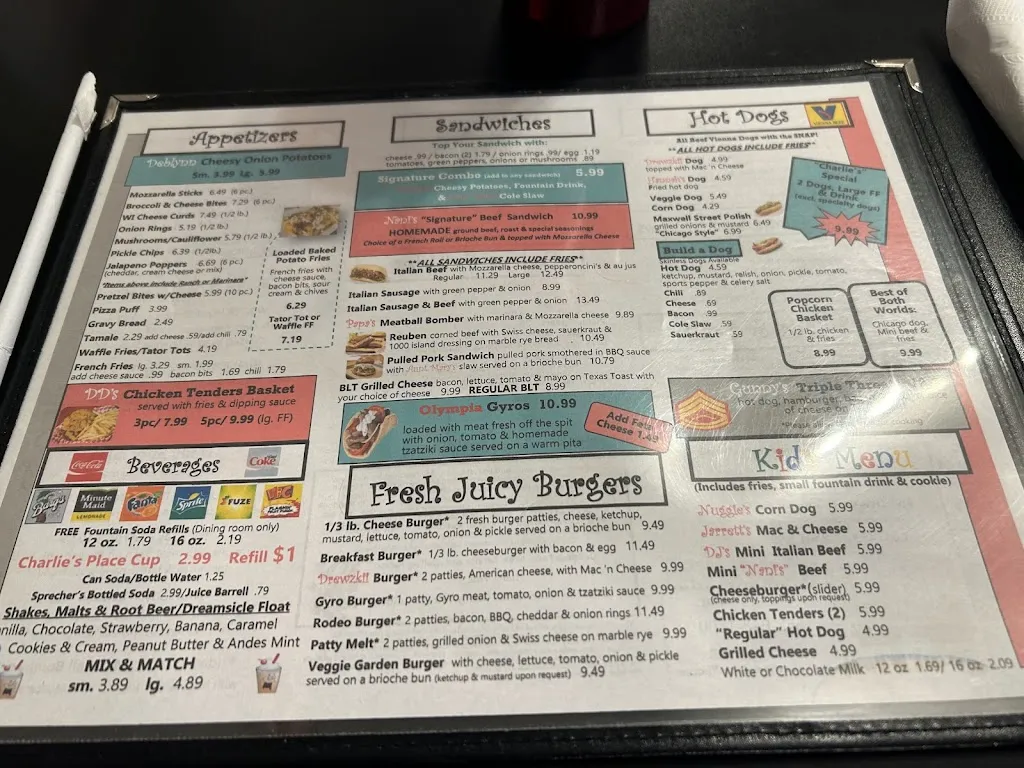 Appetizers
Deblynn Cheesy Onion Potatoes
Sm. 3.99 Lg. 5.99
Mozzarella Sticks 6.49 (6 pc.)
Broccoli & Cheese Bites 7.29 (6 pc.)
WI Cheese Curds 7.49 (1/2 lb.)
Onion Rings 5.19 (1/2 lb.)
Mushrooms/Cauliflower 5.79 (1/2 lb.)
Pickle Chips 6.39 (1/2lb.)
Jalapeno Poppers 6.69 (6 pc.)
(cheddar, cream cheese or mix)
*Items above include Ranch or Marinara*
Pretzel Bites w/Cheese 5.99 (10 pc.)
Pizza Puff 3.99
Gravy Bread 2.49
Tamale 2.29 add cheese .59/add chili .79
Waffle Fries/Tator Tots 4.19
French Fries lg. 3.29 sm. 1.99
add cheese sauce .99 bacon bits 1.69 chili 1.79
Loaded Baked
Potato Fries
French fries with
cheese sauce,
bacon bits, sour
cream & chives
6.29
Tator Tot or
Waffle FF
7.19
DD's Chicken Tenders Basket
served with fries & dipping sauce
3pc/ 7.99 5pc/ 9.99 (lg. FF)
Coca-Cola
Beverages
Diet Coke
Barq's
Minute Maid
LEMONADE
Fanta
Sprite
FUZE
FREE Fountain Soda Refills (Dining room only)
12 oz. 1.79 16 oz. 2.19
Charlie's Place Cup 2.99 Refill $1
Can Soda/Bottle Water 1.25
Sprecher's Bottled Soda 2.99/Juice Barrell .79
Shakes, Malts & Root Beer/Dreamsicle Float
nilla, Chocolate, Strawberry, Banana, Caramel
Cookies & Cream, Peanut Butter & Andes Mint
MIX & MATCH
sm. 3.89 lg. 4.89
Sandwiches
Top Your Sandwich with:
cheese .99 / bacon (2) 1.79 / onion rings .99/ egg 1.19
tomatoes, green peppers, onions or mushrooms .89
Signature Combo (add to any sandwich) 5.99
Cheesy Potatoes, Fountain Drink,
& Cole Slaw
Nani's "Signature" Beef Sandwich 10.99
HOMEMADE ground beef, roast & special seasonings
Choice of a French Roll or Brioche Bun & topped with Mozzarella Cheese
**ALL SANDWICHES INCLUDE FRIES**
Italian Beef with Mozzarella cheese, pepperoncini's & au jus
Regular 11.29 Large 12.49
Italian Sausage with green pepper & onion 8.99
Italian Sausage & Beef with green pepper & onion 13.49
Papa's Meatball Bomber with marinara & Mozzarella cheese 9.89
Reuben corned beef with Swiss cheese, sauerkraut &
1000 island dressing on marble rye bread 10.49
Pulled Pork Sandwich pulled pork smothered in BBQ sauce
with slaw served on a brioche bun 10.79
BLT Grilled Cheese bacon, lettuce, tomato & mayo on Texas Toast with
your choice of cheese 9.99 REGULAR BLT 8.99
Olympia Gyros 10.99
loaded with meat fresh off the spit
with onion, tomato & homemade
tzatziki sauce served on a warm pita
Add Feta
Cheese 1.49
Fresh Juicy Burgers
1/3 lb. Cheese Burger* 2 fresh burger patties, cheese, ketchup,
mustard, lettuce, tomato, onion & pickle served on a brioche bun 9.49
Breakfast Burger* 1/3 lb. cheeseburger with bacon & egg 11.49
DrewzkII Burger* 2 patties, American cheese, with Mac 'n Cheese 9.99
Gyro Burger* 1 patty, Gyro meat, tomato, onion & tzatziki sauce 9.99
Rodeo Burger* 2 patties, bacon, BBQ, cheddar & onion rings 11.49
Patty Melt* 2 patties, grilled onion & Swiss cheese on marble rye 9.99
Veggie Garden Burger with cheese, lettuce, tomato, onion & pickle
served on a brioche bun (ketchup & mustard upon request) 9.49
Hot Dogs
V
All Beef Vienna Dogs with the SNAP!
**ALL HOT DOGS INCLUDE FRIES**
Drewzkii Dog 4.99
topped with Mac 'n Cheese
Dog 4.59
Fried hot dog
Veggie Dog 5.49
Corn Dog 4.29
Maxwell Street Polish 6.49
grilled onions & mustard
"Chicago Style" 6.99
"Charlie's
Special
2 Dogs, Large FF
& Drink
(excl. specialty dogs)
9.99
Build a Dog
Skinless Dogs Available
Hot Dog 4.59
ketchup, mustard, relish, onion, pickle, tomato,
sports pepper & celery salt
Chili .89
Cheese .69
Bacon .99
Cole Slaw .59
Sauerkraut .59
Popcorn
Chicken
Basket
1/2 lb. chicken
& fries
8.99
Best of
Both
Worlds:
Chicago dog,
Mini beef &
fries
9.99
Gunny's Triple Threat
hot dog, hamburger,
of cheese on
Kid's Menu
(Includes fries, small fountain drink & cookie)
Nuggie's Corn Dog 5.99
Jarrett's Mac & Cheese 5.99
DJ's Mini Italian Beef 5.99
Mini "Nani's" Beef 5.99
Cheeseburger*(slider) 5.99
(cheese only, toppings upon request)
Chicken Tenders (2) 5.99
"Regular" Hot Dog 4.99
Grilled Cheese 4.99
White or Chocolate Milk 12 oz 1.69/ 16 oz 2.09